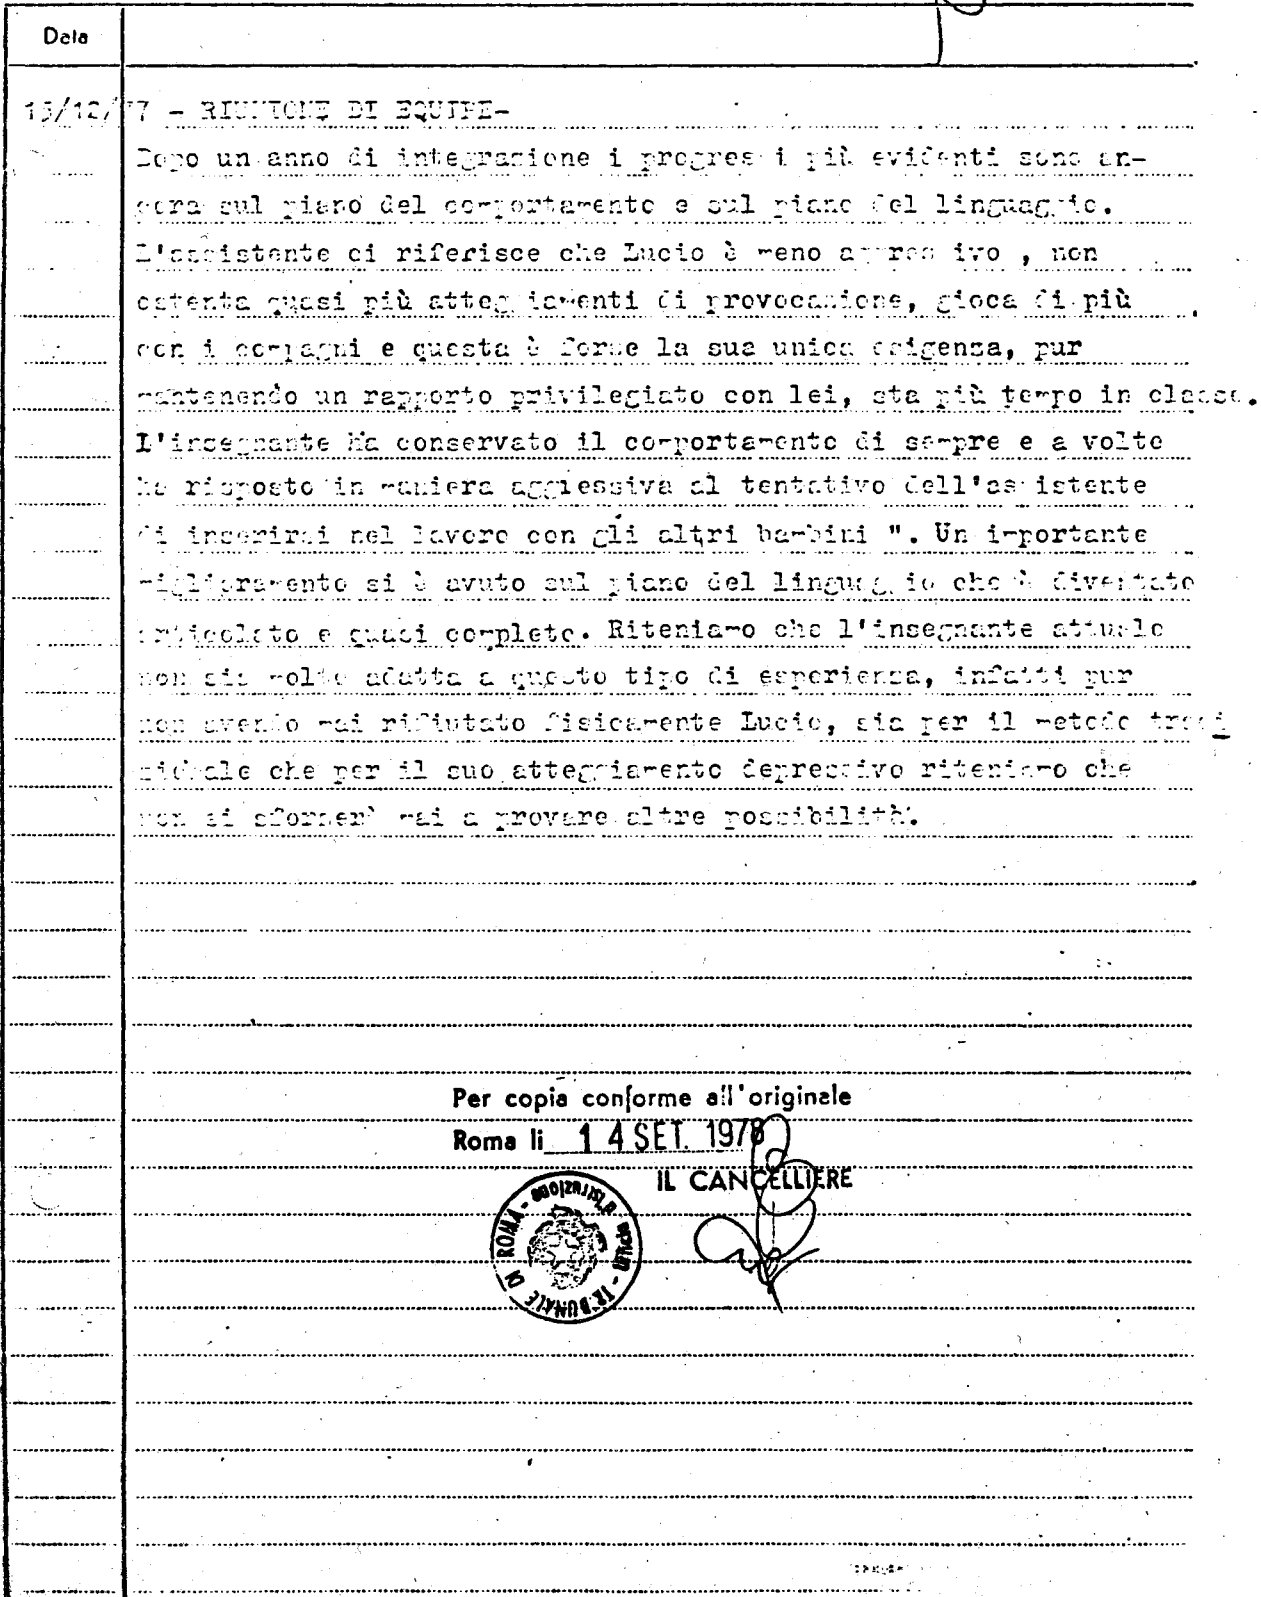 Data
15/12/77 - RIUNIONE DI EQUIPE-
Dopo un anno di integrazione i progressi più evidenti sono an-
cora sul piano del comportamento e sul piano del linguaggio.
L'assistente ci riferisce che Lucio è meno aggressivo , non
ostenta quasi più atteggiamenti di provocazione, gioca di più
con i compagni e questa è forse la sua unica esigenza, pur
mantenendo un rapporto privilegiato con lei, sta più tempo in classe.
L'insegnante ha conservato il comportamento di sempre e a volte
ha risposto in maniera aggressiva al tentativo dell'assistente
di inserirsi nel lavoro con gli altri bambini ". Un importante
miglioramento si è avuto sul piano del linguaggio che è diventato
articolato e quasi completo. Riteniamo che l'insegnante attuale
non sia molto adatta a questo tipo di esperienza, infatti pur
non avendo mai rifiutato fisicamente Lucio, sia per il metodo tradi
zionale che per il suo atteggiamento depressivo riteniamo che
non si sforzerà mai a provare altre possibilità.
Per copia conforme all'originale
Roma li 14 SET. 1978
IL CANCELLIERE
TRIBUNALE DI ROMA - d'istruzione